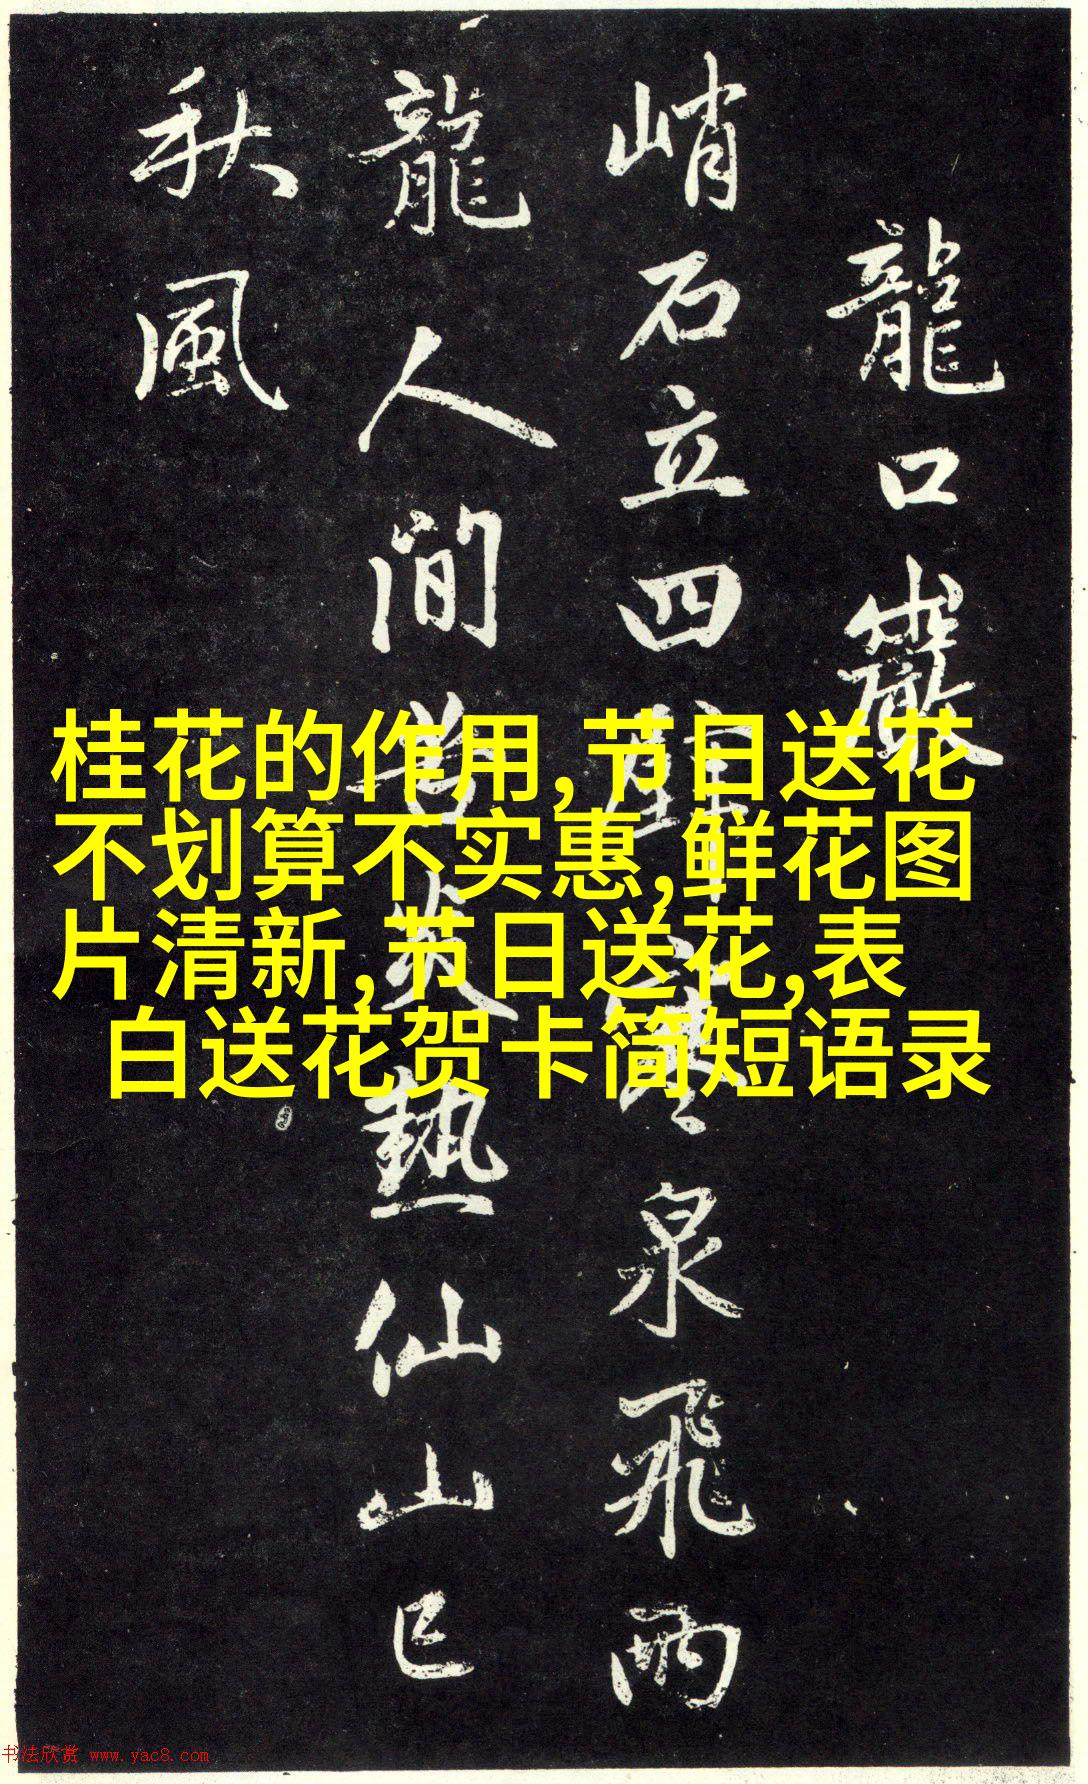 龍口巖
峭石立四壁寒泉飛兩
龍人間苦炎熱仙山已
秋風
桂花的作用,节日送花
不划算不实惠,鲜花图
片清新,节日送花,表
白送花贺卡简短语录
书法欣赏 www.yac8.com